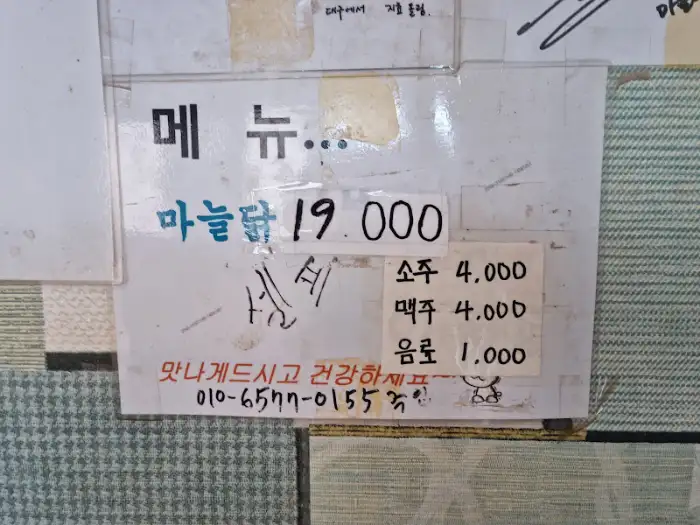 대구에서 지효 올림.
메 뉴...
마늘닭 19.000
소주 4.000
맥주 4.000
음료 1.000
맛나게드시고 건강하세요~
010-6577-0155